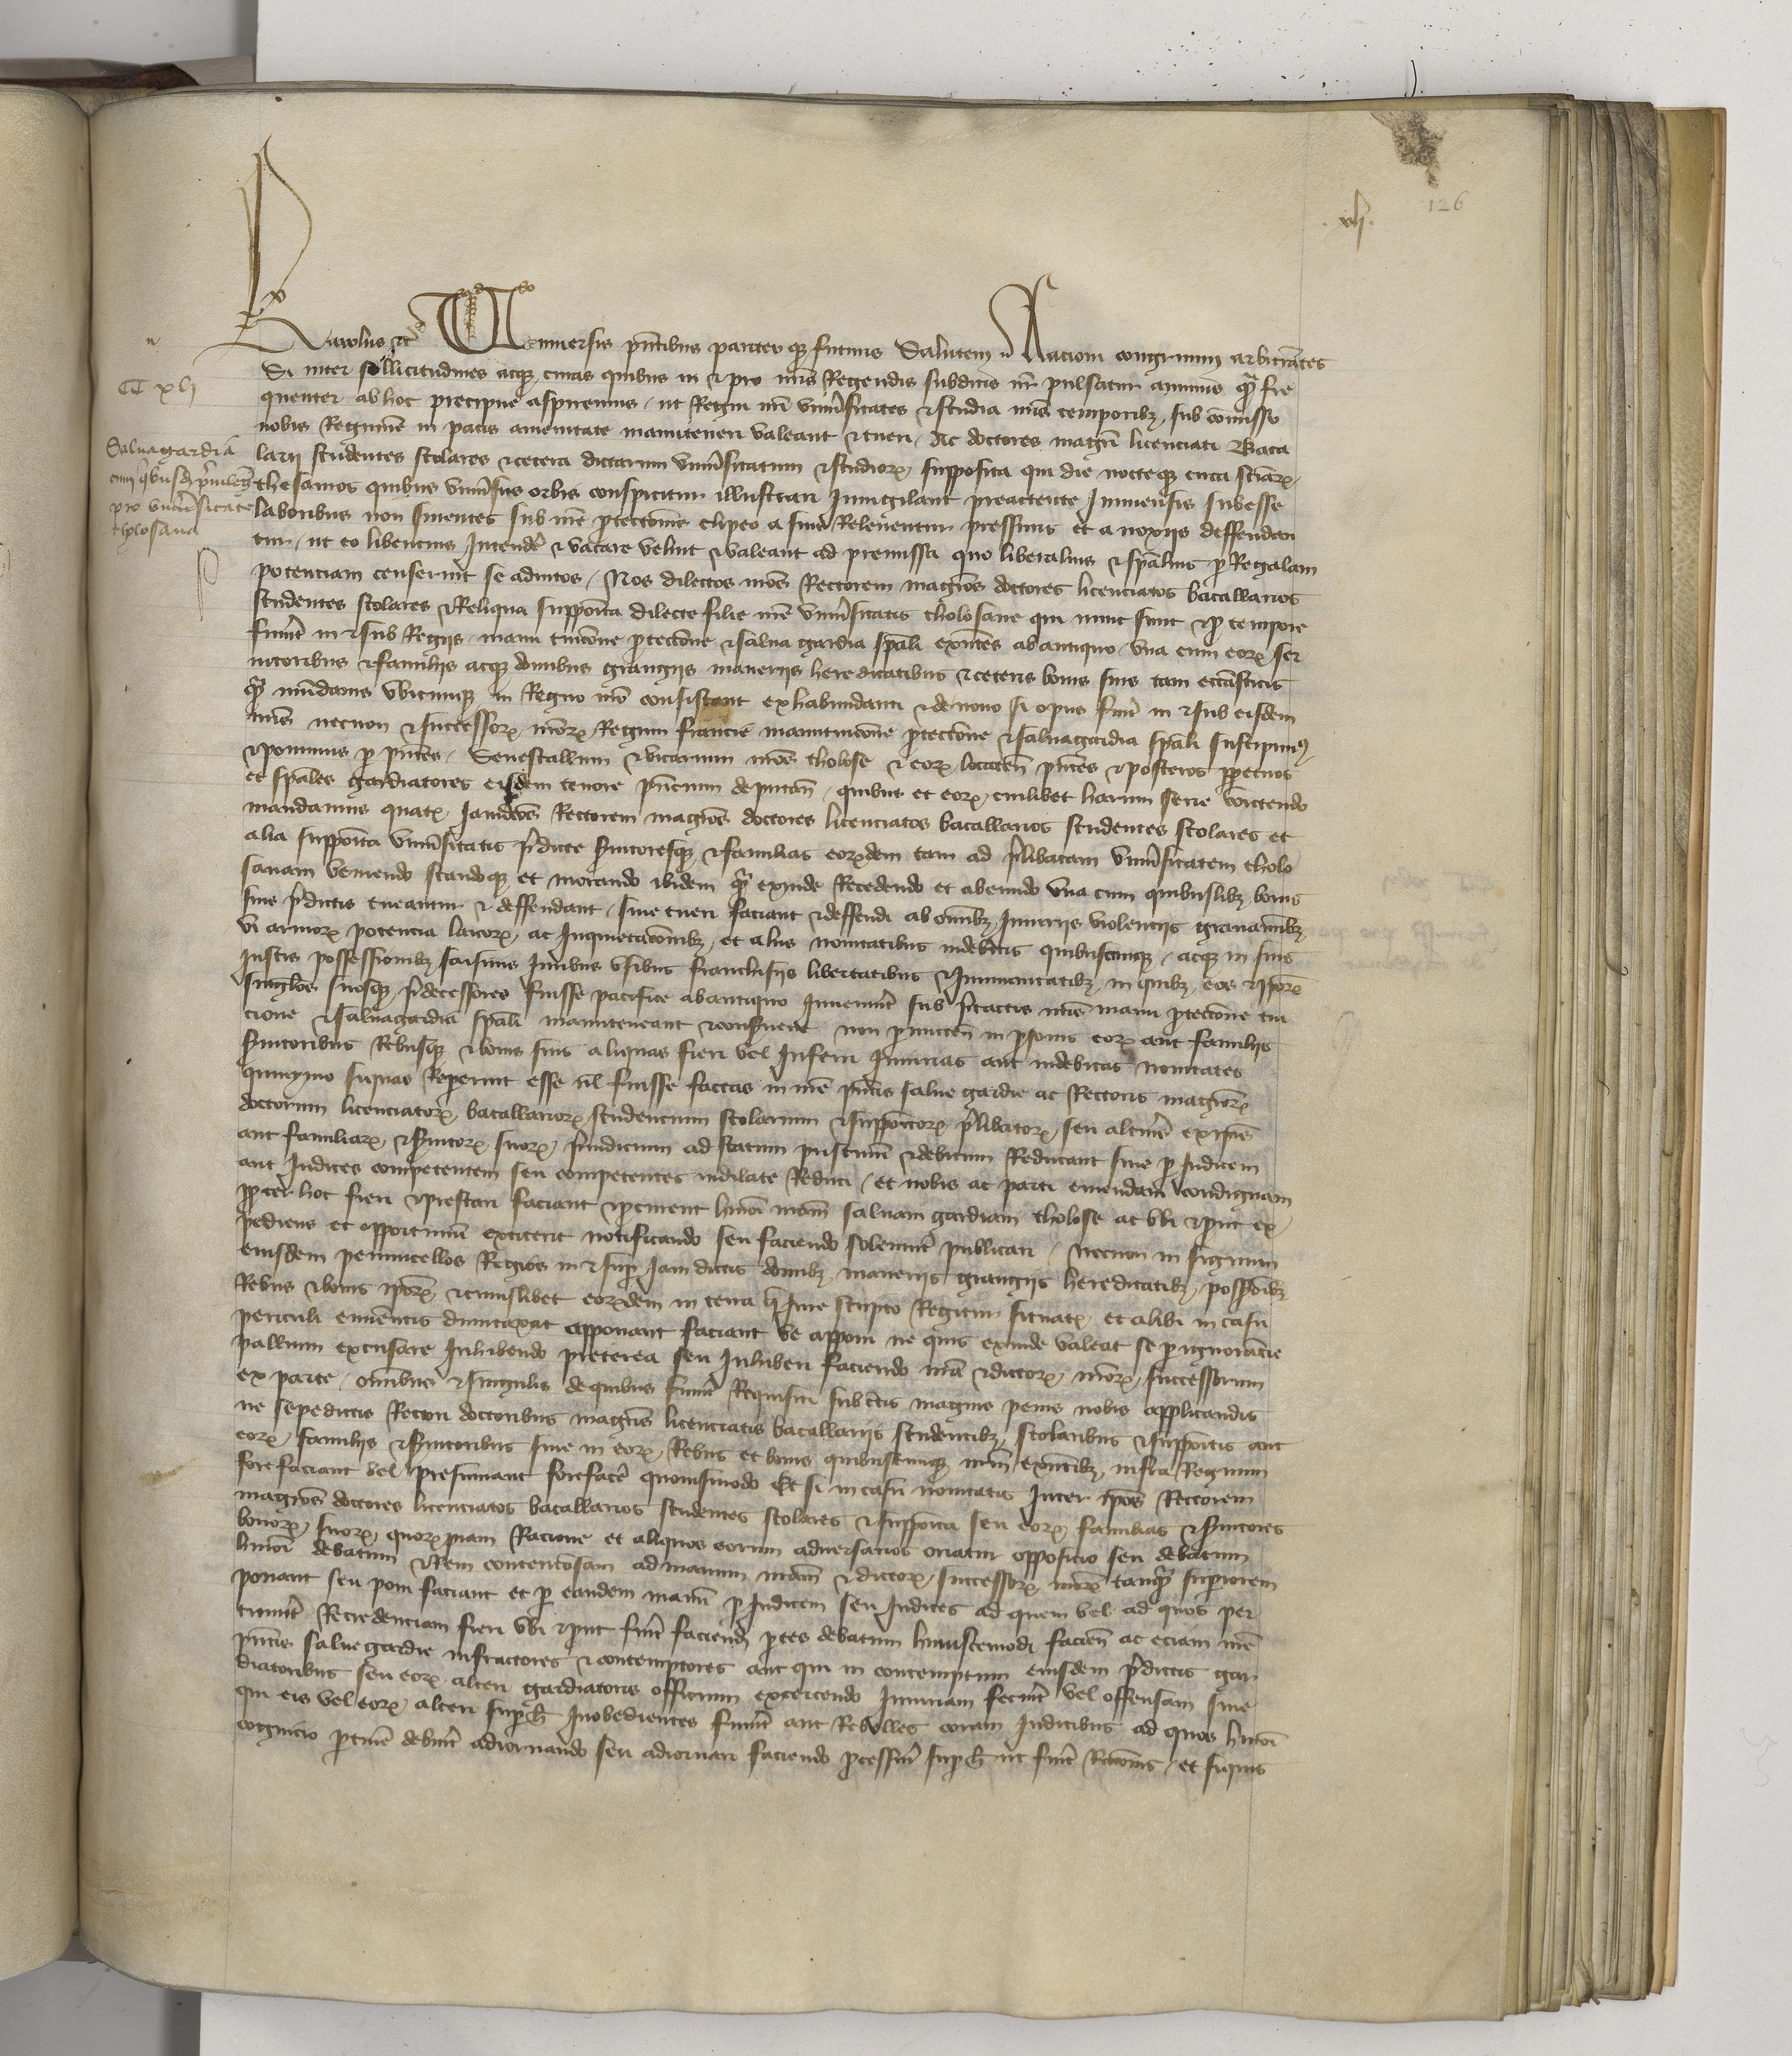 126
.vi.
Karolus etc Universis pñtibus pariter qȝ futuris Salutem Racioni congruum arbitrãtes
CC xli
Si inter sollicitudines atqȝ curas quibus in et pro nr̃is Regendis subditis nr̃ pulsatur animus qua fre
quenter ab hoc precipue aspiremus / ut Regni nr̃i univ̾sitates et studia nr̃is temporibȝ sub comisso
nobis Regimine in pacis amenitate manuteneri valeant et tueri / Ac doctores magr̃i licenciati Baca
Salvagardia
cum quibusdã privilegiis
pro universitate
tholosana
larii studentes scolares et cetera dictarum univ̾sitatum et studiorꝝ supposita qui die nocteqȝ circa sciãrꝝ
thesauros quibus univ̾sus orbis conspicitur illustrari Invigilant preactente Immensis subesse
laboribus non sinentes sub nr̃e ꝓtectiõnis clipeo a suis Releventur pressuris et a noxiis deffendan
tur / ut eo libencius Intendẽ et vacare velint et valeant ad premissa quo liberalius et sp̃alius ꝑ Regalem
potenciam censerint se adiutos / Nos dilectos nr̃os Rectorem magr̃os doctores licenciatos bacallarios
studentes scolares et Reliqua supposita dilecte filie nr̃e univ̾sitatis tholosane qui nunc sunt et ꝓ tempore
fuerit in et sub Regiis manu tuicõne ꝓtectiõne et salva gardia sp̃ali exñtes ab antiquo / Una cum eorꝝ ser
vitoribus et familiis atqȝ domibus grangiis maneriis hereditatibus et ceteris bonis suis tam eccl̃iasticis
qua mundanis Ubicumqȝ in Regno nr̃o consistant ex habundanti et de novo si opus fuerit in et sub eisdem
nr̃is necnon et successorꝝ nr̃orꝝ Regum francie manutuicõne ꝓtectiõne et salvagardia sp̃ali suscipimꝰ
et ponimus ꝑ pñtes / Senescallum et vicarium nr̃os tholose et eorꝝ locateñ pñtes et posteros ꝑpetuos
et sp̃ales gardiatores eisdem tenore pñcium deputañ / quibus et eorꝝ cuilibet harum serie comictendo
mandamus quatꝝ Iamdictos Rectorem magr̃os doctores licenciatos bacallarios studentes scolares et
alia supposita univ̾sitatis p̃dicte s̾vitoresqȝ et familias eorꝝdem tam ad p̃libatam univ̾sitatem tholo
sanam veniendo standoqȝ et morando ibidem qua exinde Recedendo et abeundo una cum quibuslibȝ bonis
suis p̃dictis tueantur et deffendant / sive tueri faciant et deffendi ab om̃ibȝ Iniuriis violenciis gravam̃ibȝ
vi armorꝝ potencia laicorꝝ ac Inquietaciõibȝ et aliis novitatibus indebitis quibuscumqȝ / atqȝ in suis
Iustis possessionibȝ saisinis Iuribus usibus franchisiis libertatibus et Immunitatibȝ in quibȝ eos et ipsorꝝ
singl̃os suosqȝ p̃decessores fuisse pacifice ab antiquo Inveneriñt sub p̃tactis nr̃is manu ꝓtectiõne tui
cione et salvagardia sp̃ali manuteneant et conservent non ꝑmicteñ in ꝑsonis eorꝝ aut familiis
s̾vitoribus Rebusqȝ et bonis suis aliquas fieri vel Inferri Iniurias aut indebitas novitates
quinymo siquas Reperint esse vl̃ fuisse factas in nr̃e pñtis salve gardie ac Rectoris magr̃orꝝ
doctorum licenciatorꝝ bacallariorꝝ studencium scolarium et suppositorꝝ p̃libatorꝝ seu alterius ex ipsis
aut familiarꝝ et s̾vitorꝝ suorꝝ p̃iudicium ad statum pristinũ et debitum Reducant sive ꝑ Iudicem
aut Iudices competentem seu competentes indilate Reduci / et nobis ac parti emendam condignam
ꝓpter hoc fieri et prestari faciant et p̃sentem huĩoi nr̃am salvam gardiam tholose ac ubi et put ex
pediens et opportunũ extiterit notificando seu faciendo solenniter publicari / Necnon in signum
eiusdem penuncellos Regios in et sup̃ Iam dictis domibȝ maneriis grangiis hereditatibȝ poss̃ionibȝ
Rebus et bonis ip̃orꝝ et cuiuslibet eorꝝdem in terra que Iure scripto Regitur situatꝝ et alibi in casu
periculi eminẽtis dumtaxat apponant faciant ve apponi ne quis exinde valeat se ꝑ ignorãcie
pallium excusare Inhibendo preterea seu Inhiberi faciendo nr̃a et dictorꝝ nr̃orꝝ successorum
ex parte / omnibus et singulis de quibus fuerit Requisiti sub certis magnis penis nobis applicandis
ne sepedictis Rectori doctoribus magr̃is licenciatis bacallariis studentibȝ scolaribus et suppositis aut
eorꝝ familiis et s̾vitoribus sive in eorꝝ Rebus et bonis quibuscumqȝ exñtibȝ infra Regnum
forefaciant vel presumant forefacẽ quovismodo Et si in casu novitatis Inter ip̃os Rectorem
magr̃os doctores licenciatos bacallarios studentes scolares et supposita seu eorꝝ familias et s̾vitores
bonorꝝ suorꝝ quorꝝpiam Racione et aliquos eorum adversarios oriatur opposicio seu debatum
huĩoi debatum et Rem contenciosam ad manum nr̃am et dictorꝝ successorꝝ nr̃orꝝ tanqua superiorem
ponant seu poni faciant et ꝑ eandem manũ ꝑ Iudicem seu Iudices ad quem vel ad quos per
tinuerit Recredenciam fieri ubi et put fuerit faciendꝝ ꝑtes debatum huiuscemodi facieñ ac eciam nr̃e
pñtis salve gardie infractores et contemptores aut qui in contemptum eiusdem p̃dictis gar
diatoribus seu eorꝝ alteri gardiatoris officium exercendo Iniuriam fecerint vel offensam sive
qui eis vel eorꝝ alteri sup̃ hiis Inobedientes fuerint aut Rebelles coram Iudicibus ad quos huĩoi
cognicio ꝑtinẽ debuerit adiornando seu adiornari faciendo ꝓcessuri sup̃ hiis ut fuerit Rationis / et siquis